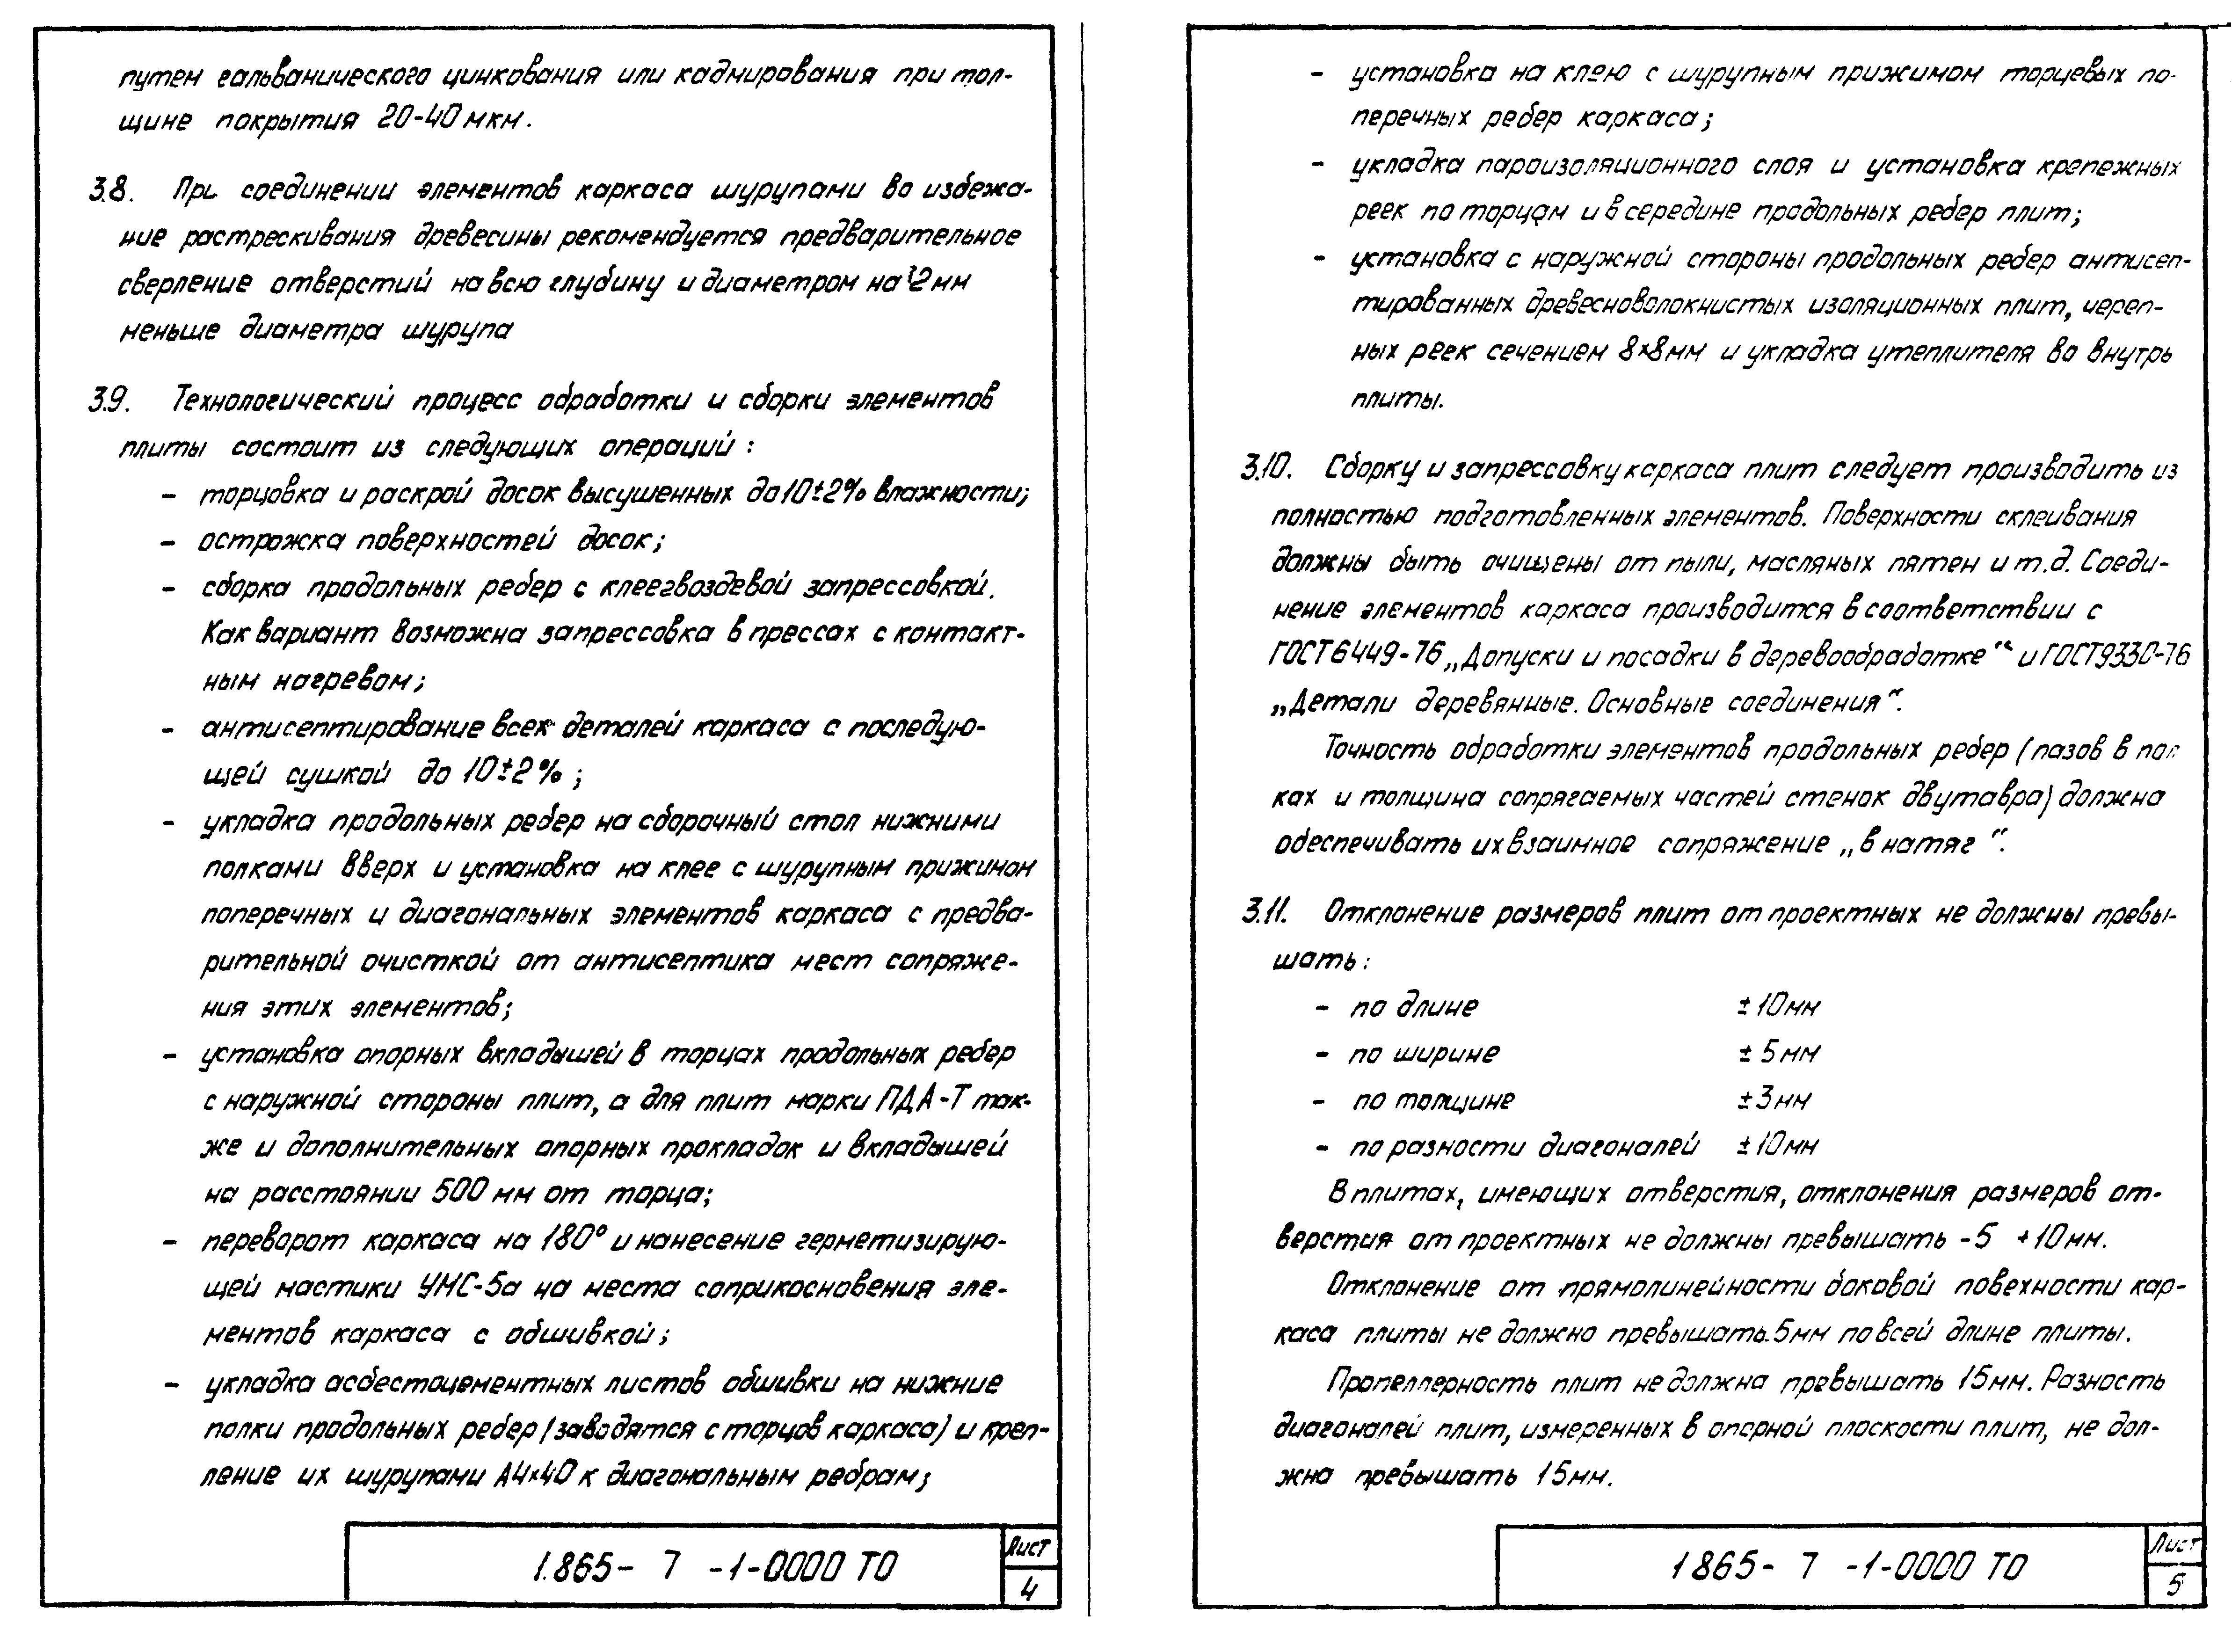 путем гальванического цинкования или кадмирования при тол-
щине покрытия 20-40 мкм.
3.8. При соединении элементов каркаса шурупами во избежа-
ние растрескивания древесины рекомендуется предварительное
сверление отверстий на всю глубину и диаметром на 2 мм
меньше диаметра шурупа
3.9. Технологический процесс обработки и сборки элементов
плиты состоит из следующих операций:
- торцовка и раскрой досок высушенных до 10±2% влажности;
- острожка поверхностей досок;
- сборка продольных ребер с клеегвоздевой запрессовкой.
Как вариант возможна запрессовка в прессах с контакт-
ным нагревом;
- антисептирование всех деталей каркаса с последую-
щей сушкой до 10±2%;
- укладка продольных ребер на сборочный стол нижними
полками вверх и установка на клее с шурупным прижимом
поперечных и диагональных элементов каркаса с предва-
рительной очисткой от антисептика мест сопряже-
ния этих элементов;
- установка опорных вкладышей в торцах продольных ребер
с наружной стороны плит, а для плит марки ПДА-Т так-
же и дополнительных опорных прокладок и вкладышей
на расстоянии 500 мм от торца;
- переворот каркаса на 180° и нанесение герметизирую-
щей мастики УМС-5а на места соприкосновения эле-
ментов каркаса с обшивкой;
- укладка асбестоцементных листов обшивки на нижние
полки продольных ребер (заводятся с торцов каркаса) и креп-
ление их шурупами А4×40 к диагональным ребрам;
1.865- 7 -1-0000 ТО
Лист
4
- установка на клею с шурупным прижимом торцевых по-
перечных ребер каркаса;
- укладка пароизоляционного слоя и установка крепежных
реек по торцам и в середине продольных ребер плит;
- установка с наружной стороны продольных ребер антисеп-
тированных древесноволокнистых изоляционных плит, череп-
ных реек сечением 8×8мм и укладка утеплителя во внутрь
плиты.
3.10. Сборку и запрессовку каркаса плит следует производить из
полностью подготовленных элементов. Поверхности склеивания
должны быть очищены от пыли, масляных пятен и т.д. Соеди-
нение элементов каркаса производится в соответствии с
ГОСТ 6449-76 „Допуски и посадки в деревообработке“ и ГОСТ 9330-76
„Детали деревянные. Основные соединения“.
Точность обработки элементов продольных ребер (пазов в пол
ках и толщина сопрягаемых частей стенок двутавра) должна
обеспечивать их взаимное сопряжение „в натяг“.
3.11. Отклонение размеров плит от проектных не должны превы-
шать:
- по длине ±10мм
- по ширине ±5мм
- по толщине ±3мм
- по разности диагоналей ±10мм
В плитах, имеющих отверстия, отклонения размеров от-
верстия от проектных не должны превышать -5 +10мм.
Отклонение от прямолинейности боковой повехности кар-
каса плиты не должно превышать 5мм по всей длине плиты.
Пропеллерность плит не должна превышать 15мм. Разность
диагоналей плит, измеренных в опорной плоскости плит, не дол-
жна превышать 15мм.
1865- 7 -1-0000 ТО
Лист
5